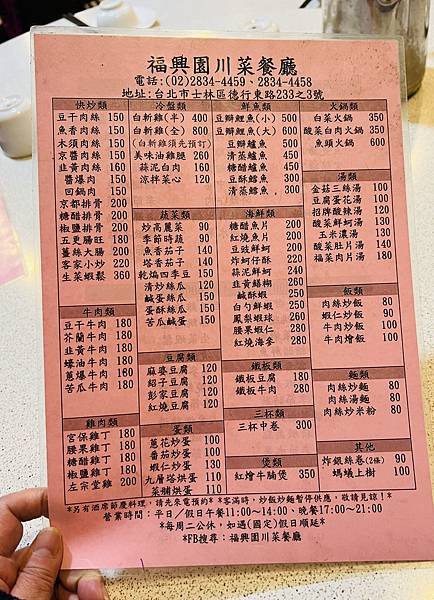 福興園川菜餐廳
電話:(02)2834-4459、2834-4458
地址:台北市士林區德行東路233之3號
快炒類
豆干肉絲 150
魚香肉絲 150
木須肉絲 150
京醬肉絲 150
韭黃肉絲 160
醬爆肉 150
回鍋肉 150
京都排骨 200
糖醋排骨 200
椒鹽排骨 200
五更腸旺 180
薑絲大腸 200
客家小炒 220
生菜蝦鬆 360
牛肉類
豆干牛肉 180
芥蘭牛肉 180
韭黃牛肉 180
蠔油牛肉 180
蔥爆牛肉 160
苦瓜牛肉 180
雞肉類
宮保雞丁 180
腰果雞丁 180
糖醋雞丁 180
椒鹽雞丁 180
左宗堂雞 200
冷盤類
白斬雞(半) 400
白斬雞(全) 800
(白斬雞須先預訂)
美味油雞腿 260
蒜泥白肉 160
涼拌菜心 120
蔬菜類
炒高麗菜 90
季節時蔬 90
魚香茄子 140
塔香茄子 140
乾煸四季豆 150
清炒絲瓜 120
鹹蛋絲瓜 150
蛋酥絲瓜 150
苦瓜鹹蛋 150
豆腐類
麻婆豆腐 120
紹子豆腐 120
彭家豆腐 120
紅燒豆腐 120
蛋類
蔥花炒蛋 100
番茄炒蛋 100
蝦仁炒蛋 130
九層塔烘蛋 110
菜脯烘蛋 110
鮮魚類
豆瓣鯉魚(小) 500
豆瓣鯉魚(大) 600
豆瓣鱸魚 500
清蒸鱸魚 450
豆酥鱈魚 300
清蒸鱈魚 300
海鮮類
糖醋魚片 200
紅燒魚片 200
豆豉鮮蚵 200
炸蚵仔酥 220
蒜泥鮮蚵 200
韭黃鱔糊 260
鹹酥蝦 200
白勺鮮蝦 200
鳳梨蝦球 280
腰果蝦仁 200
紅燒海參 280
鐵板類
鐵板豆腐 180
鐵板牛肉 280
三杯類
三杯中卷 300
煲類
紅燴牛腩煲 350
火鍋類
白菜火鍋 350
酸菜白肉火鍋 350
魚頭火鍋 600
湯類
金菇三絲湯 100
豆腐蛋花湯 100
招牌酸辣湯 120
酸菜鮮蚵湯 130
玉米濃湯 130
酸菜肚片湯 140
福菜肉片湯 180
飯類
肉絲炒飯 80
蝦仁炒飯 90
牛肉炒飯 100
牛肉燴飯 100
麵類
肉絲炒麵 80
肉絲湯麵 80
肉絲炒米粉 80
其他
炸銀絲卷(2條) 90
螞蟻上樹 100
*另有酒席節慶料理,請先來電預約* *客滿時,炒飯炒麵暫停供應,敬請見諒!*
營業時間:平日/假日午餐11:00~14:00,晚餐17:00~21:00
*每周二公休,如遇(國定)假日順延*
*FB搜尋:福興園川菜餐廳